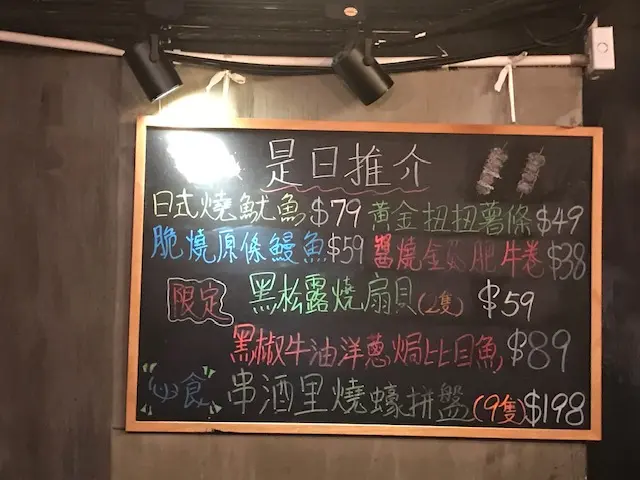 是日推介
日式燒魷魚$79 黃金扭扭薯條$49
脆燒原條鰻魚$59 醬燒金菇肥牛卷$38
限定 黑松露燒扇貝(2隻) $59
黑椒牛油洋蔥焗比目魚$89
必食 串酒里燒蠔拼盤(9隻)$198